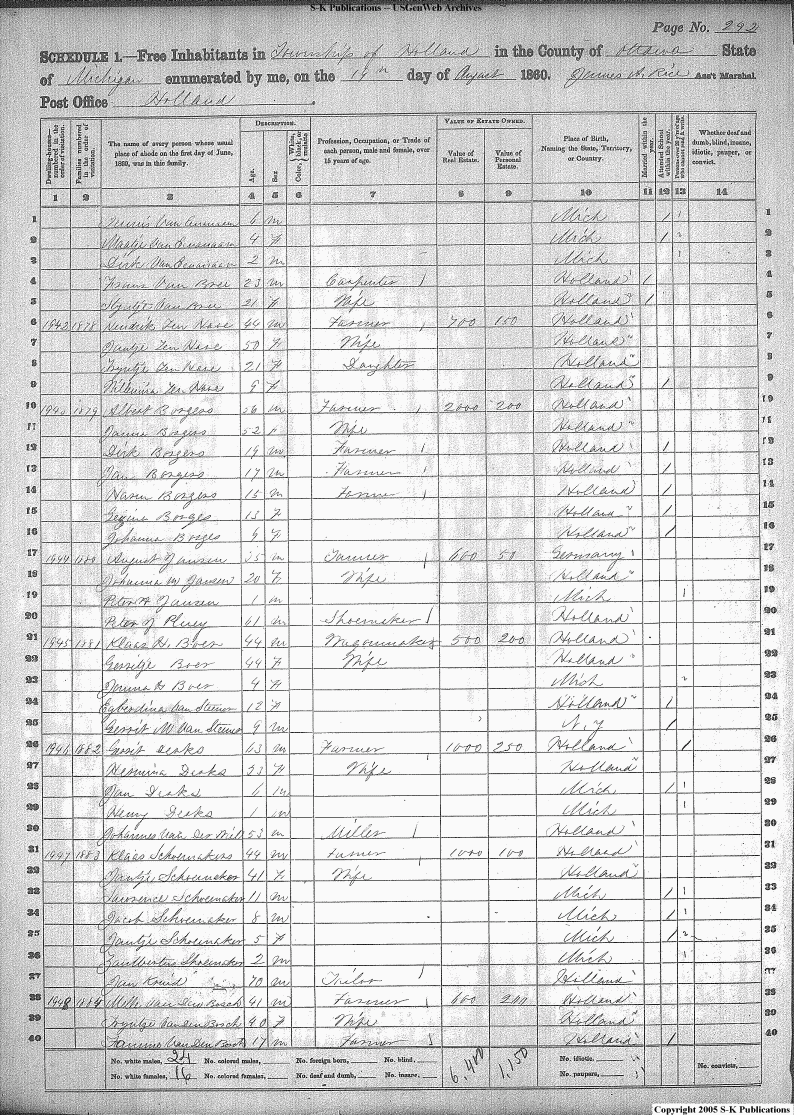 S-K Publications – USGenWeb Archives
Page No. 292
SCHEDULE 1.—Free Inhabitants in Township of Holland in the County of Ottawa State
of Michigan enumerated by me, on the 19th day of August 1860. James A. Rice Ass't Marshal.
Post Office Holland
Dwelling-houses numbered in the order of visitation. Families numbered in the order of visitation. The name of every person whose usual place of abode on the first day of June, 1860, was in this family. DESCRIPTION. Age. Sex Color, White, black, or mulatto. Profession, Occupation, or Trade of each person, male and female, over 15 years of age. VALUE OF ESTATE OWNED. Value of Real Estate. Value of Personal Estate. Place of Birth, Naming the State, Territory, or Country. Married within the year. Attended School within the year. Whether deaf and dumb, blind, insane, idiotic, pauper, or convict.
1 2 3 4 5 6 7 8 9 10 11 12 13 14
1 6 m Mich / 1
2 4 f Mich / 2
3 Dirk 2 m Mich 3
4 23 m Carpenter Holland / 4
5 21 f Wife Holland / 5
6 1942 1878 Hendrik Ten Have 44 m Farmer 700 150 Holland 6
7 Jantje Ten Have 50 f Wife Holland 7
8 Ten Have 21 f Daughter Holland 8
9 Willemina Ten Have 9 f Holland / 9
10 1879 Albert Borgers 56 m Farmer 2000 200 Holland 10
11 Borgers 52 f Wife Holland 11
12 Dirk Borgers 19 m Farmer Holland / 12
13 Jan Borgers 17 m Farmer Holland / 13
14 Harm Borgers 15 m Farmer Holland / 14
15 Gezina Borges 13 f Holland / 15
16 Johanna Borges 9 f Holland / 16
17 1944 1880 August Jansen 35 m Farmer 600 50 Germany 17
18 Johanna M Jansen 20 f Wife Holland 18
19 Peter A Jansen 1 m Mich 19
20 Peter J 61 m Shoemaker Holland 20
21 1945 1881 Klaas H. Boer 44 m Wagonmaker 500 200 Holland 21
22 Boer 44 f Wife Holland 22
23 Boer 4 f Mich 23
24 Egberdina Van 12 f Holland / 24
25 Gerrit M Van 9 m N. Y / 25
26 1946 1882 Gerrit Deaks 63 m Farmer 1000 250 Holland / 26
27 Hermina Deaks 33 f Wife Holland 27
28 Jan Deaks 6 m Mich / 28
29 Henry Deaks 1 m Mich 29
30 Johannes Van Der Mill 53 m Miller Holland 30
31 1947 1883 Klaas Schoemakers 44 m Farmer 1000 100 Holland 31
32 Jantje Schoemaker 41 f Wife Holland 32
33 Lawrence Schoemaker 11 m Mich / 33
34 Jacob Schoemaker 8 m Mich / 34
35 Jantje Schoemaker 5 f Mich / 35
36 Shoemaker 2 m Mich 36
37 Jan 70 m Holland 37
38 1948 1884 Van Den Bosch 41 m Farmer 600 200 Holland 38
39 Van Den Bosch 40 f Wife Holland 39
40 Van Den Bosch 17 m Farmer Holland / 40
No. white males, 24 No. colored males, No. foreign born, No. blind, 6,400 1,150 No. idiotic,
No. white females, 16 No. colored females, No. deaf and dumb, No. insane, No. paupers, No. convicts,
Copyright 2005 S-K Publications